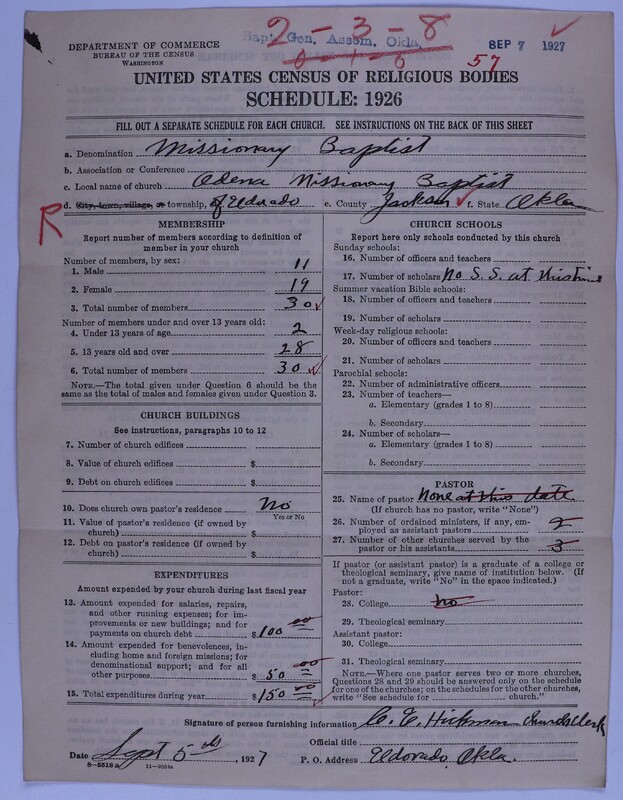 2-3-8
Bapt. Gen. Assem. Okla.
0-1-0
SEP 7 1927
57
DEPARTMENT OF COMMERCE
BUREAU OF THE CENSUS
WASHINGTON
UNITED STATES CENSUS OF RELIGIOUS BODIES
SCHEDULE: 1926
FILL OUT A SEPARATE SCHEDULE FOR EACH CHURCH. SEE INSTRUCTIONS ON THE BACK OF THIS SHEET
a. Denomination Missionary Baptist
b. Association or Conference
c. Local name of church Odena Missionary Baptist
R
d. City, town, village, or township, of Eldorado e. County Jackson f. State Okla
MEMBERSHIP
Report number of members according to definition of
member in your church
Number of members, by sex:
1. Male 11
2. Female 19
3. Total number of members 30
Number of members under and over 13 years old:
4. Under 13 years of age 2
5. 13 years old and over 28
6. Total number of members 30
NOTE.—The total given under Question 6 should be the
same as the total of males and females given under Question 3.
CHURCH BUILDINGS
See instructions, paragraphs 10 to 12
7. Number of church edifices
8. Value of church edifices $
9. Debt on church edifices $
10. Does church own pastor's residence No
Yes or No
11. Value of pastor's residence (if owned by
church) $
12. Debt on pastor's residence (if owned by
church) $
EXPENDITURES
Amount expended by your church during last fiscal year
13. Amount expended for salaries, repairs,
and other running expenses; for im-
provements or new buildings; and for
payments on church debt $100 00
14. Amount expended for benevolences, in-
cluding home and foreign missions; for
denominational support; and for all
other purposes $50 00
15. Total expenditures during year $150 00
CHURCH SCHOOLS
Report here only schools conducted by this church
Sunday schools:
16. Number of officers and teachers
17. Number of scholars No S. S. at this time
Summer vacation Bible schools:
18. Number of officers and teachers
19. Number of scholars
Week-day religious schools:
20. Number of officers and teachers
21. Number of scholars
Parochial schools:
22. Number of administrative officers
23. Number of teachers—
a. Elementary (grades 1 to 8)
b. Secondary
24. Number of scholars—
a. Elementary (grades 1 to 8)
b. Secondary
PASTOR
25. Name of pastor None at this date
(If church has no pastor, write "None")
26. Number of ordained ministers, if any, em-
ployed as assistant pastors 2
27. Number of other churches served by the
pastor or his assistants 3
If pastor (or assistant pastor) is a graduate of a college or
theological seminary, give name of institution below. (If
not a graduate, write "No" in the space indicated.)
Pastor:
28. College no
29. Theological seminary
Assistant pastor:
30. College
31. Theological seminary
NOTE.—Where one pastor serves two or more churches,
Questions 28 and 29 should be answered only on the schedule
for one of the churches; on the schedules for the other churches,
write "See schedule for church."
Signature of person furnishing information C. E. Hickman Church Clerk
Official title
Date Sept 5th, 1927 P. O. Address Eldorado, Okla.
8—5518a